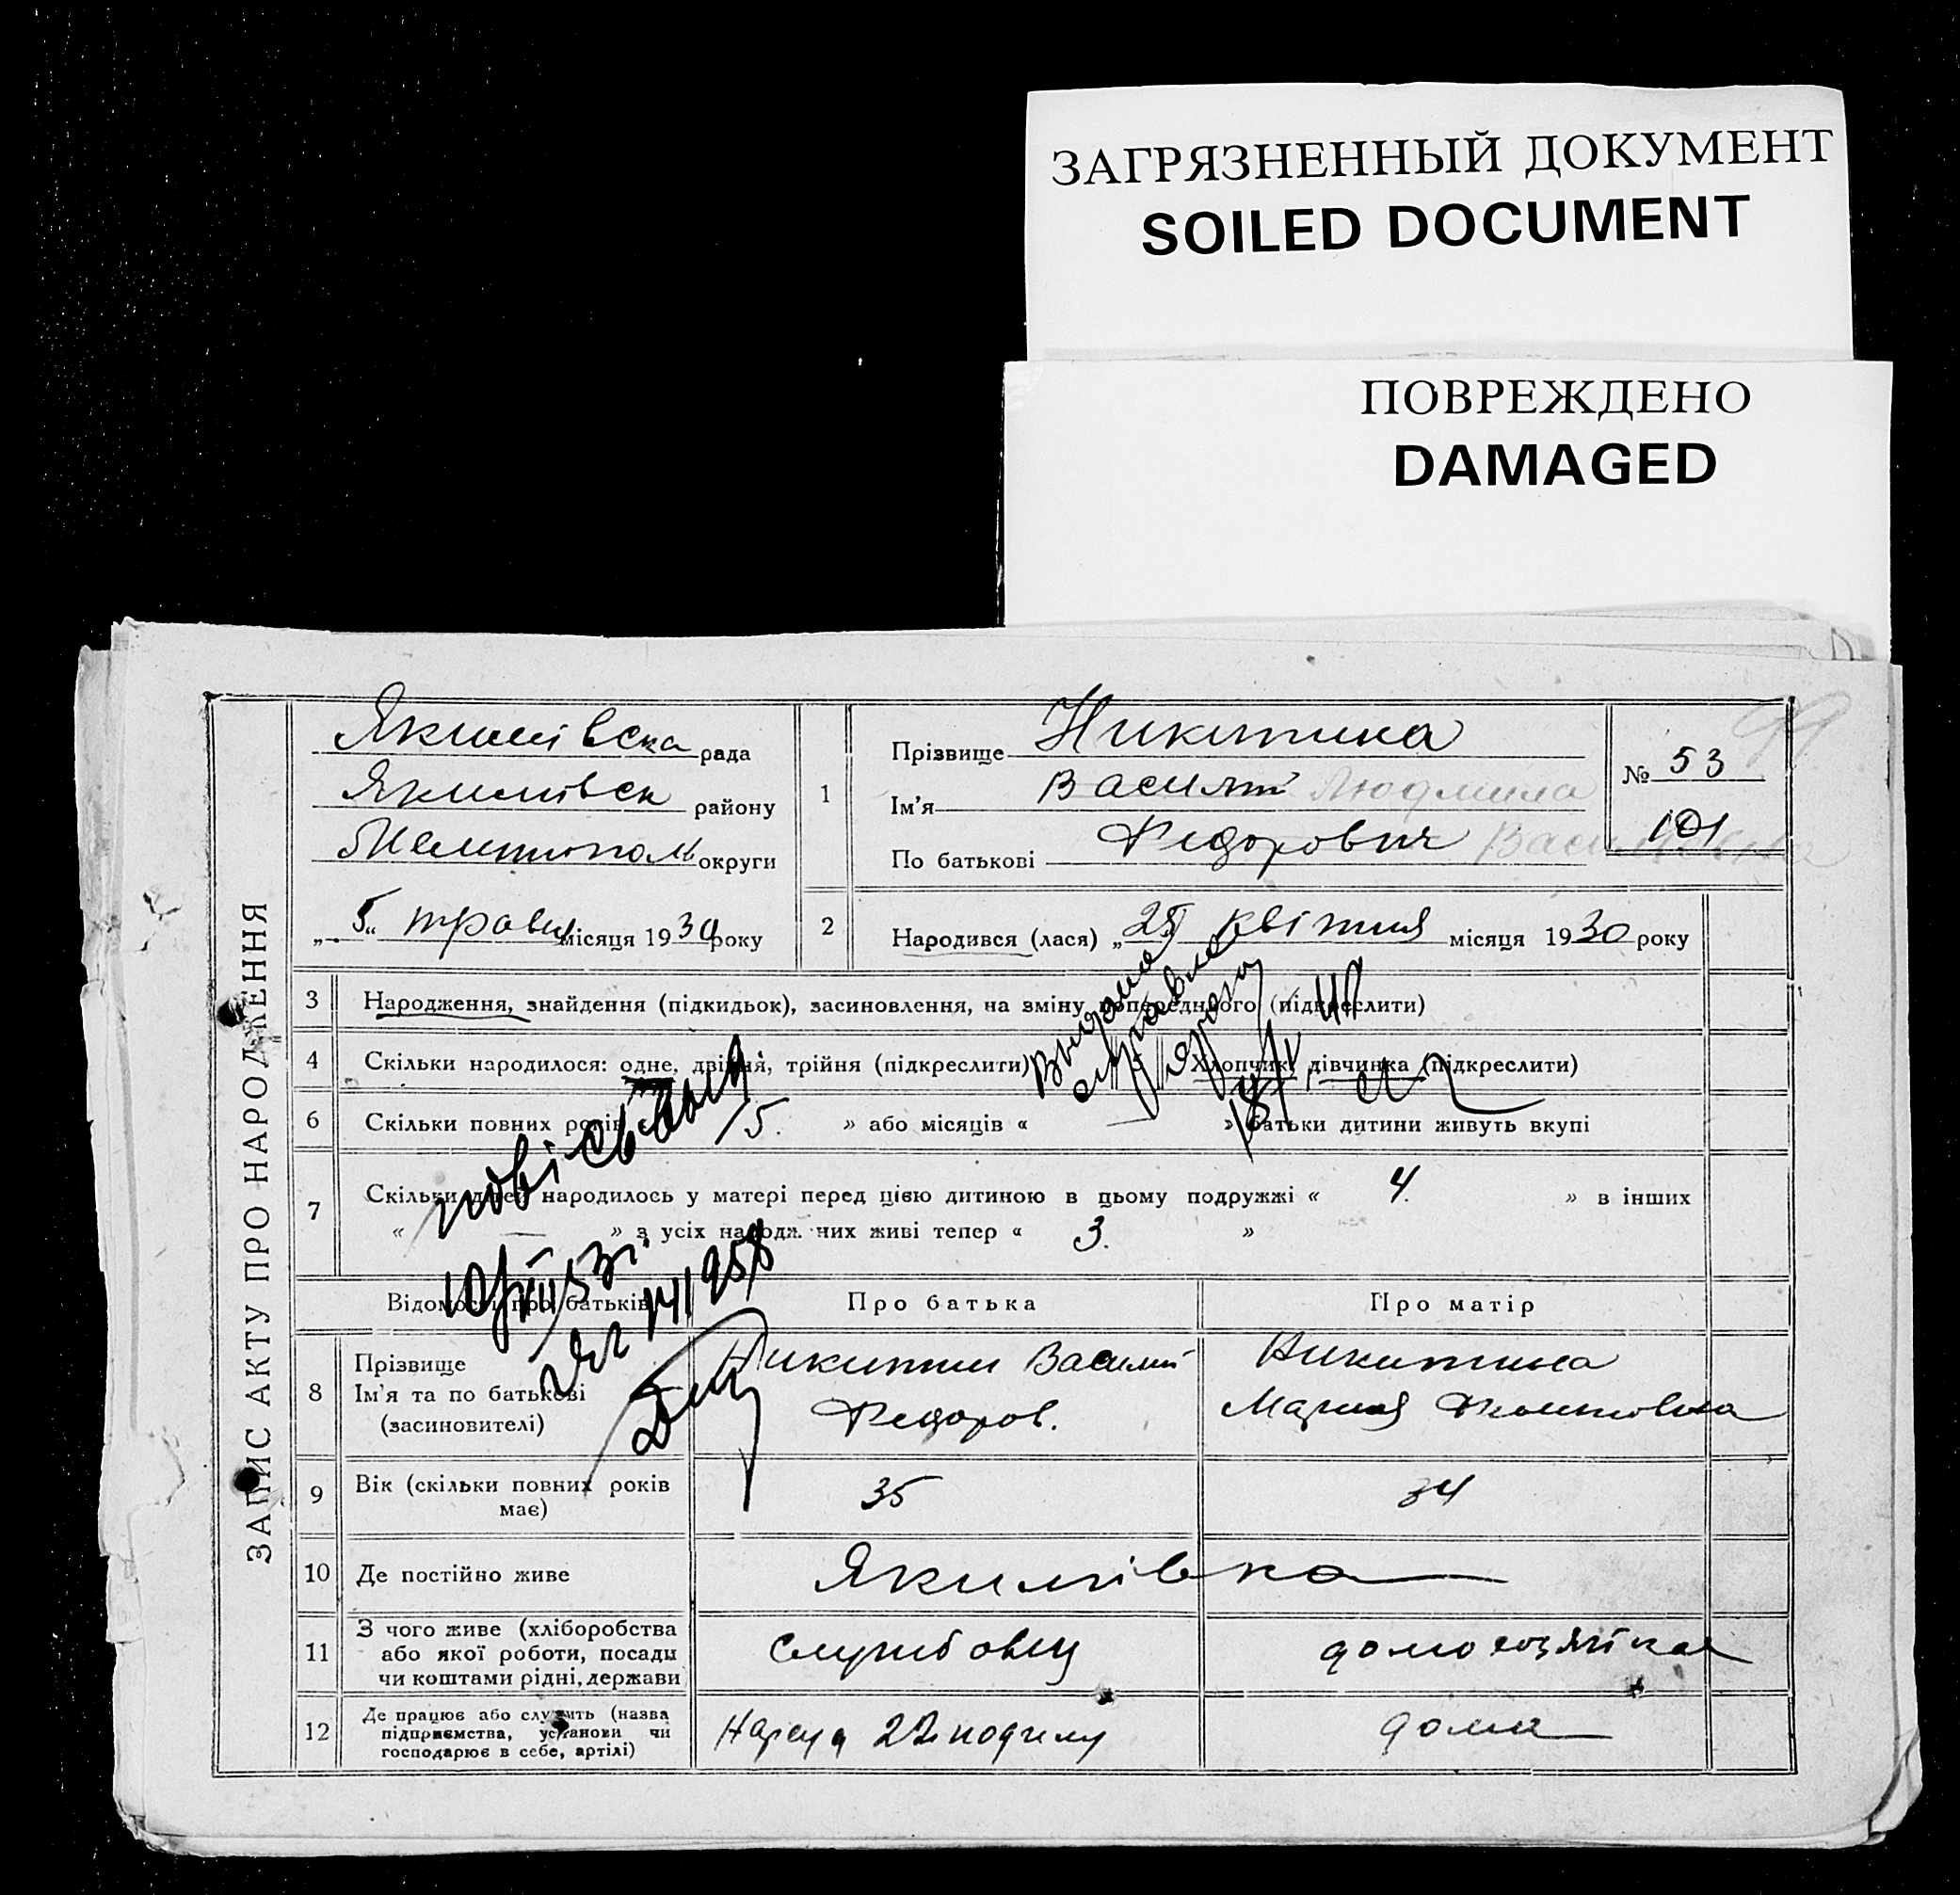 ЗАГРЯЗНЕННЫЙ ДОКУМЕНТ
SOILED DOCUMENT
ПОВРЕЖДЕНО
DAMAGED
99
ЗАПИС АКТУ ПРО НАРОДЖЕННЯ
Якимівска рада
Якимівськ району
Мелитополь округи
„5“ травня місяця 1930 року
1
Прізвище Никитина
Ім'я Василий Людмила
По батькові Федорович Васильевна
№ 53
101
2
Народився (лася) „25 квітня місяця 1930 року
3 Народження, знайдення (підкидьок), засиновлення, на зміну попереднього (підкреслити)
4 Скільки народилося: одне, двійня, трійня (підкреслити) Хлопчик, дівчинка (підкреслити)
6 Скільки повних років 15. » або місяців « — » батьки дитини живуть вкупі
7 Скільки дітей народилось у матері перед цією дитиною в цьому подружжі « 4. » в інших
« — » з усіх народж. них живі тепер « 3. »
Відомості про батьків Про батька Про матір
8 Прізвище
Ім'я та по батькові
(засиновителі)
Никитин Василий
Федоров.
Никитина
Мария
9 Вік (скільки повних років
має)
35 34
10 Де постійно живе Якимівка
11 З чого живе (хліборобства
або якої роботи, посади
чи коштами рідні, держави
службовец домохозяйка
12 Де працює або служить (назва
підприємства, установи чи
господарює в себе, артілі)
Нарсуд дома